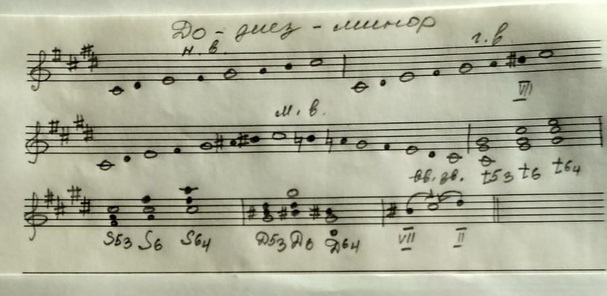 До - диез - минор
н. в. г. в
VII
м. в.
вв. зв. t53 t6 t64
S53 S6 S64 D53 D6 D64 VII II